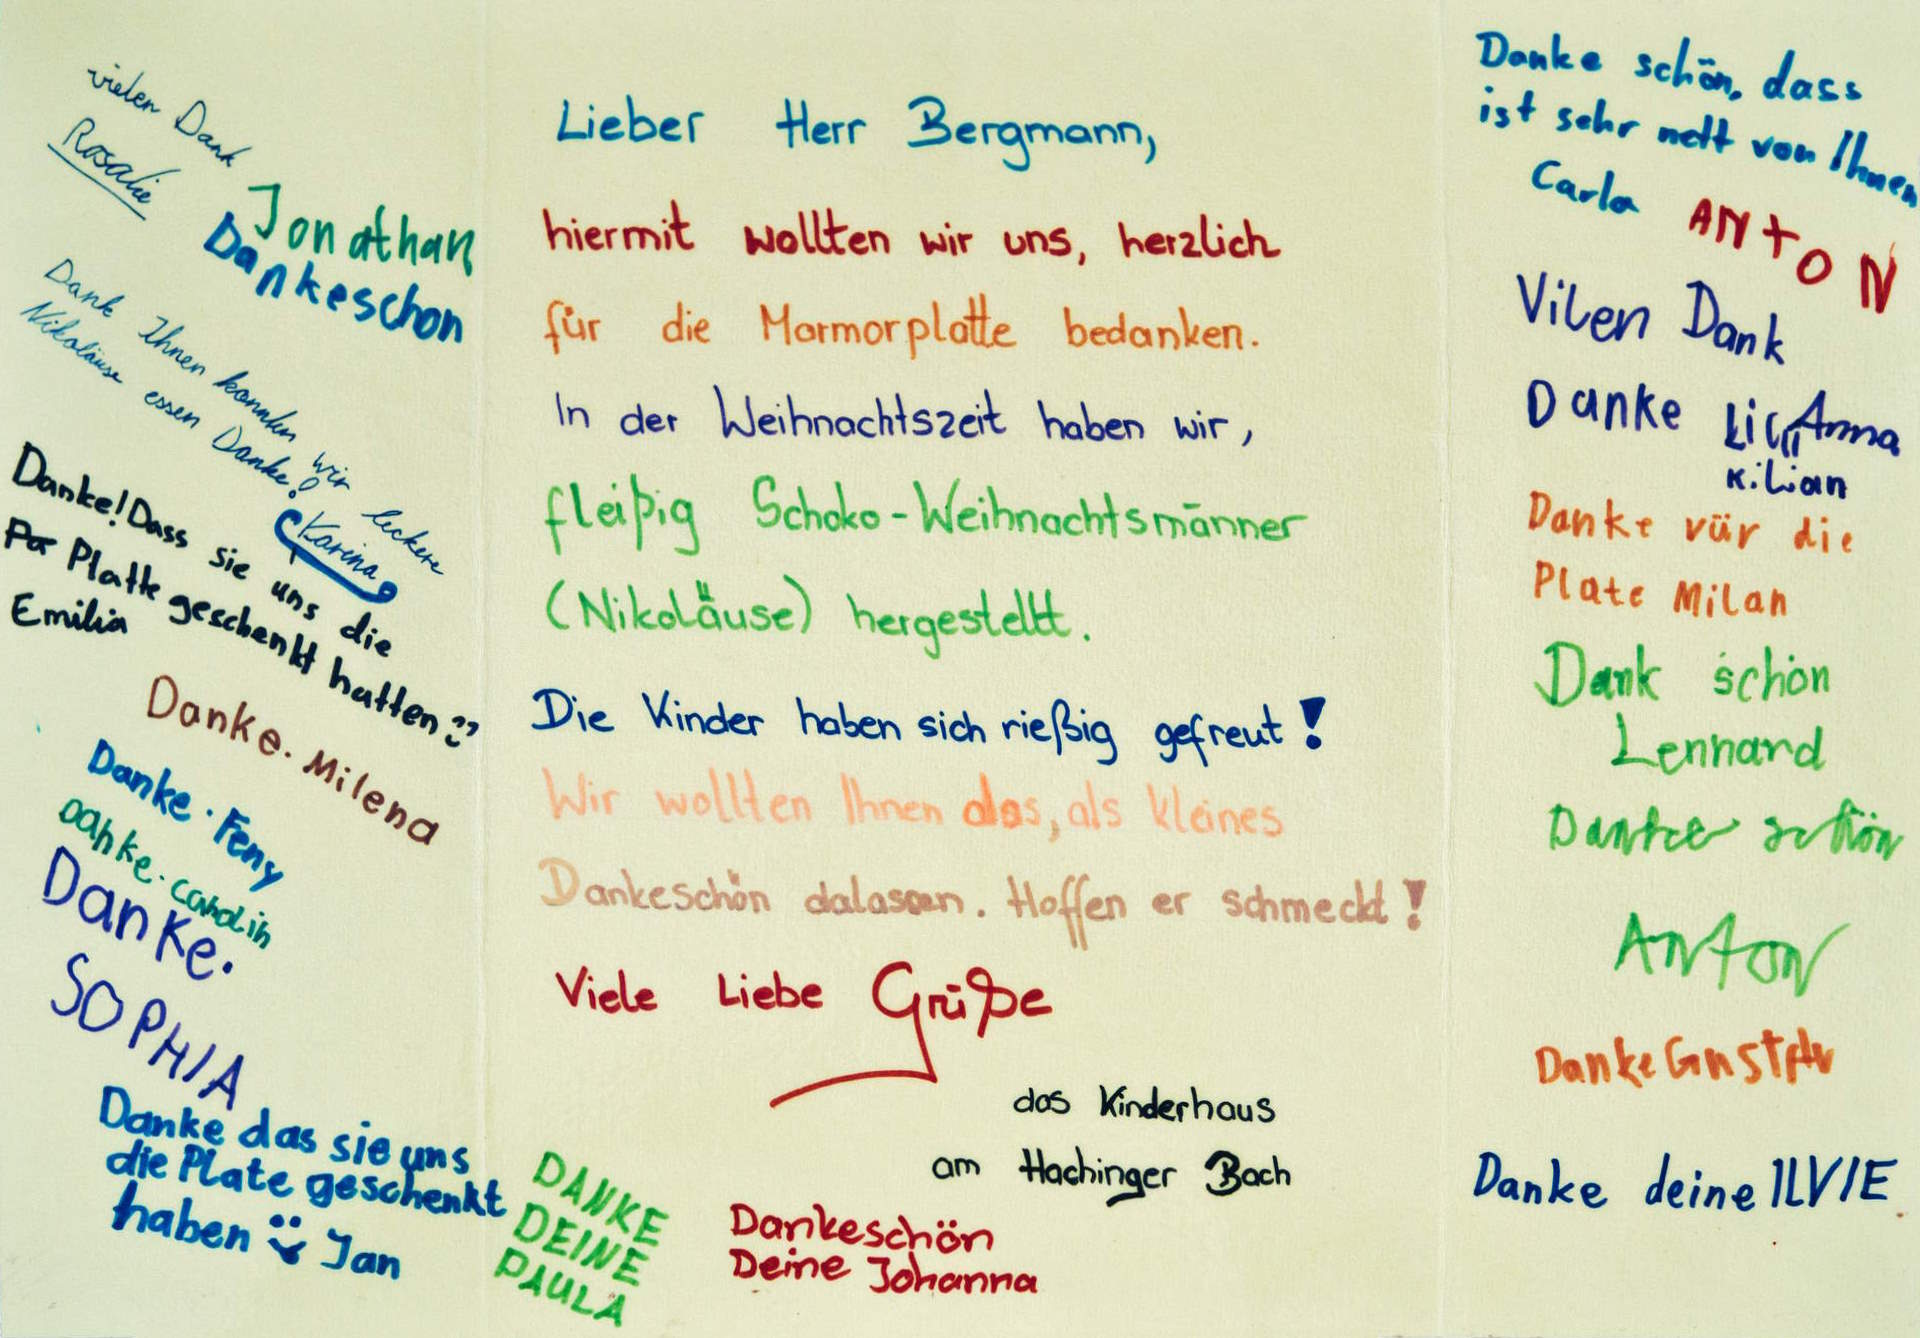 vielen Dank
Rosalie
Jonathan
Dankeschon
Dank Ihnen konnten wir leckere
Nikoläuse essen Danke!
Karina
Danke! Dass sie uns die
Platte geschenkt hatten
Emilia
Danke. Milena
Danke. Feny
Danke. Carolin
Danke.
SOPHIA
Danke das sie uns
die Plate geschenkt
haben Jan
Lieber Herr Bergmann,
hiermit wollten wir uns, herzlich
für die Marmorplatte bedanken.
In der Weihnachtszeit haben wir,
fleißig Schoko-Weihnachtsmänner
(Nikoläuse) hergestellt.
Die Kinder haben sich rießig gefreut!
Wir wollten Ihnen das, als kleines
Dankeschön dalassen. Hoffen er schmeckt!
Viele Liebe Grüße
das Kinderhaus
am Hachinger Bach
DANKE
DEINE
PAULA
Dankeschön
Deine Johanna
Danke schön, dass
ist sehr nett von Ihnen
Carla
ANtON
Vilen Dank
Danke Anna
Kilian
Danke vür die
Plate Milan
Dank schön
Lennard
Danke schön
Anton
Danke
Danke deine ILVIE